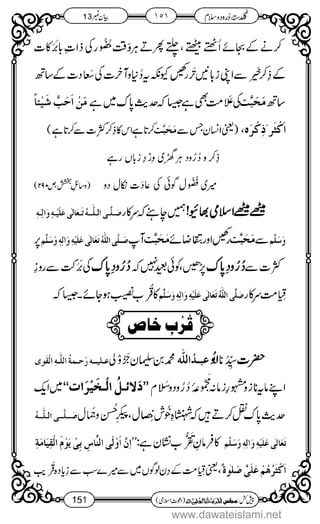 گلدستۂ درود و سلام ۱۵۱ بیان نمبر 13
کرنے کے بجائے اُٹھتے بیٹھتے، چلتے پھرتے ہر وقت حضور کی ذاتِ بابرکات
کے ذکرِ خیر سے اپنی زبانیں تر رکھیں کیونکہ یہ دُنیا و آخرت کی سعادت کے ساتھ
ساتھ مَحَبَّت کی علامت بھی ہے جیسا کہ حدیثِ پاک میں ہے مَنْ اَحَبَّ شَیْئًا
اَکْثَرَ ذِکْرَہ، (یعنی انسان جس سے مَحَبَّت کرتا ہے اس کا ذکر کثرت سے کرتا ہے)
ذکر و درود ہر گھڑی وردِ زباں رہے
میری فضول گوئی کی عادت نکال دو (وسائلِ بخشش، ص ۲۹۰)
میٹھے میٹھے اسلامی بھائیو! ہمیں چاہئے کہ سرکار صَلَّی اللہُ تَعَالٰی عَلَیْہِ وَاٰلِہٖ
وَسَلَّم سے مَحَبَّت رکھیں اور بتقاضائے مَحَبَّت آپ صَلَّی اللہُ تَعَالٰی عَلَیْہِ وَاٰلِہٖ وَسَلَّم پر
کثرت سے دُرُودِ پاک پڑھیں، کیا بعید نہیں کہ دُرُودِ پاک کی برکت سے روزِ
قیامت سرکار صَلَّی اللہُ تَعَالٰی عَلَیْہِ وَاٰلِہٖ وَسَلَّم کا قُرب نصیب ہو جائے۔ جیسا کہ
قُربِ خاص
حضرت سَیِّدُنا ابو عبد اللہ محمد بن سلیمان جَزُولی علیہ رحمۃ اللہ القوی
اپنے مایہ ناز اور مشہورِ زمانہ مجموعۂ درود و سلام ”دلائل الخیرات“ میں ایک
حدیثِ پاک نقل کرتے ہیں کہ شہنشاہِ خوش خصال، پیکرِ حُسن و جمال صَلَّی اللہُ
تَعَالٰی عَلَیْہِ وَاٰلِہٖ وَسَلَّم کا فرمانِ قُرب نشان ہے: ”اِنَّ اَوْلَی النَّاسِ بِیْ یَوْمَ الْقِیَامَۃِ
اَکْثَرُہُمْ عَلَیَّ صَلٰوۃً، یعنی قیامت کے دن لوگوں میں سے میرے سب سے زیادہ قریب
151 پیش کش: مجلس المدینۃ العلمیۃ (دعوتِ اسلامی)
www.dawateislami.net